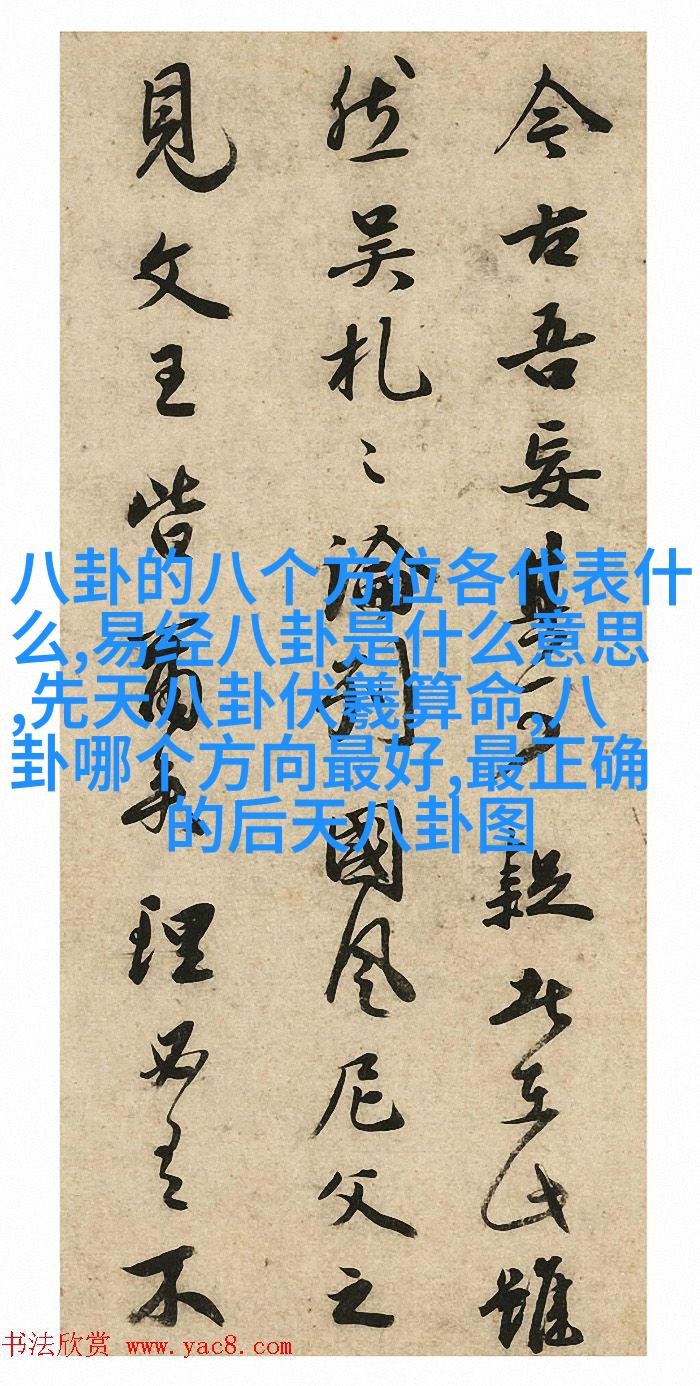 今古吾妄雖
然吴札〻論國風尼父之
見文王皆理必有不
八卦的八个方位各代表什
么,易经八卦是什么意思
,先天八卦伏羲算命,八
卦哪个方向最好,最正确
的后天八卦图
书法欣赏 www.yac8.com